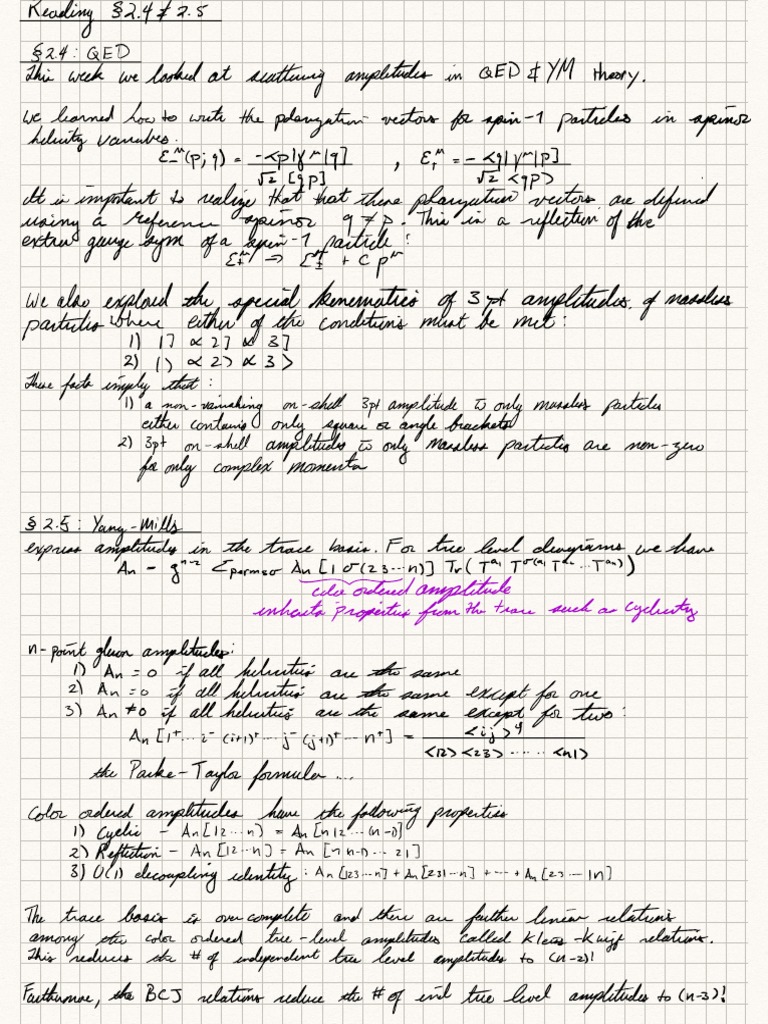 Reading §2.4 & 2.5
§2.4: QED
This week we looked at scattering amplitudes in QED & YM theory.
We learned how to write the polarization vectors for spin-1 particles in spinor
helicity variables.
ε₋^μ(p; q) = -<p|γ^μ|q] / √2 [qp] , ε₊^μ = -<q|γ^μ|p] / √2 <qp>
It is important to realize that that these polarization vectors are defined
using a reference spinor q ≠ p. This is a reflection of the
extra gauge sym of a spin-1 particle:
ε±^μ → ε±^μ + C p^μ
We also explored the special kenematics of 3 pt amplitudes of massless
particles where either of the conditions must be met:
1) 1] ∝ 2] ∝ 3]
2) 1> ∝ 2> ∝ 3>
These facts imply that:
1) a non-vanishing on-shell 3pt amplitude w only massless particles
either contains only square or angle brackets
2) 3pt on-shell amplitudes w only massless particles are non-zero
for only complex momenta
§2.5: Yang-Mills
express amplitudes in the trace basis. For tree level diagrams we have
An = g^{n-2} Σ_{perms σ} An[1 σ(23…n)] Tr(T^{a1} T^{σ(a2} T^{a3}…T^{an)})
color ordered amplitude
inherits properties from the trace such as cyclicity
n-point gluon amplitudes:
1) An = 0 if all helicities are the same
2) An = 0 if all helicities are the same except for one
3) An ≠ 0 if all helicities are the same except for two:
An[1⁺… i⁻ (i+1)⁺… j⁻ (j+1)⁺… n⁺] = <ij>⁴ / <12> <23> …… <n1>
the Parke-Taylor formula …
Color ordered amplitudes have the following properties
1) Cyclic - An[12…n) = An[n12…(n-1)]
2) Reflection - An[12…n] = An[n n-1)… 21]
3) U(1) decoupling identity: An[123…n] + An[231…n] + … + An[23…1n]
The trace basis is over complete and there are further linear relations
among the color ordered tree-level amplitudes called Kleiss-Kuijf relations.
This reduces the # of independent tree level amplitudes to (n-2)!
Furthermore, the BCJ relations reduce the # of ind tree level amplitudes to (n-3)!